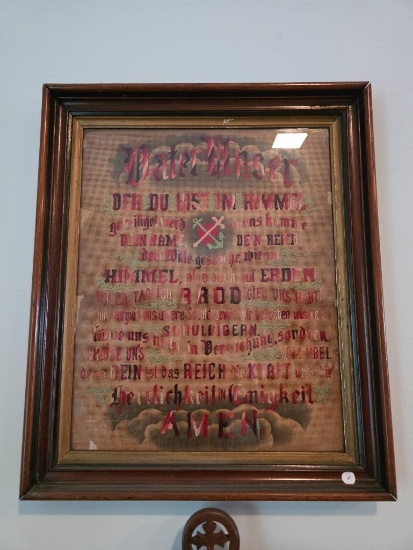 Vater Unser
DER DU BIST IM HIMMEL
geheiliget werd es komme
DEIN NAME DEIN REICH
dein Wille geschehe wie im
HIMMEL, also auch auf ERDEN
UNSER TÄGLICH BROD GIEB UNS HEUT
SCHULDIGERN.
führe uns nicht in Versuchung, sondern
ERLÖSE UNS ÜBEL
denn DEIN ist das REICH die KRAFT und die
Herrlichkeit in Ewigkeit
AMEN